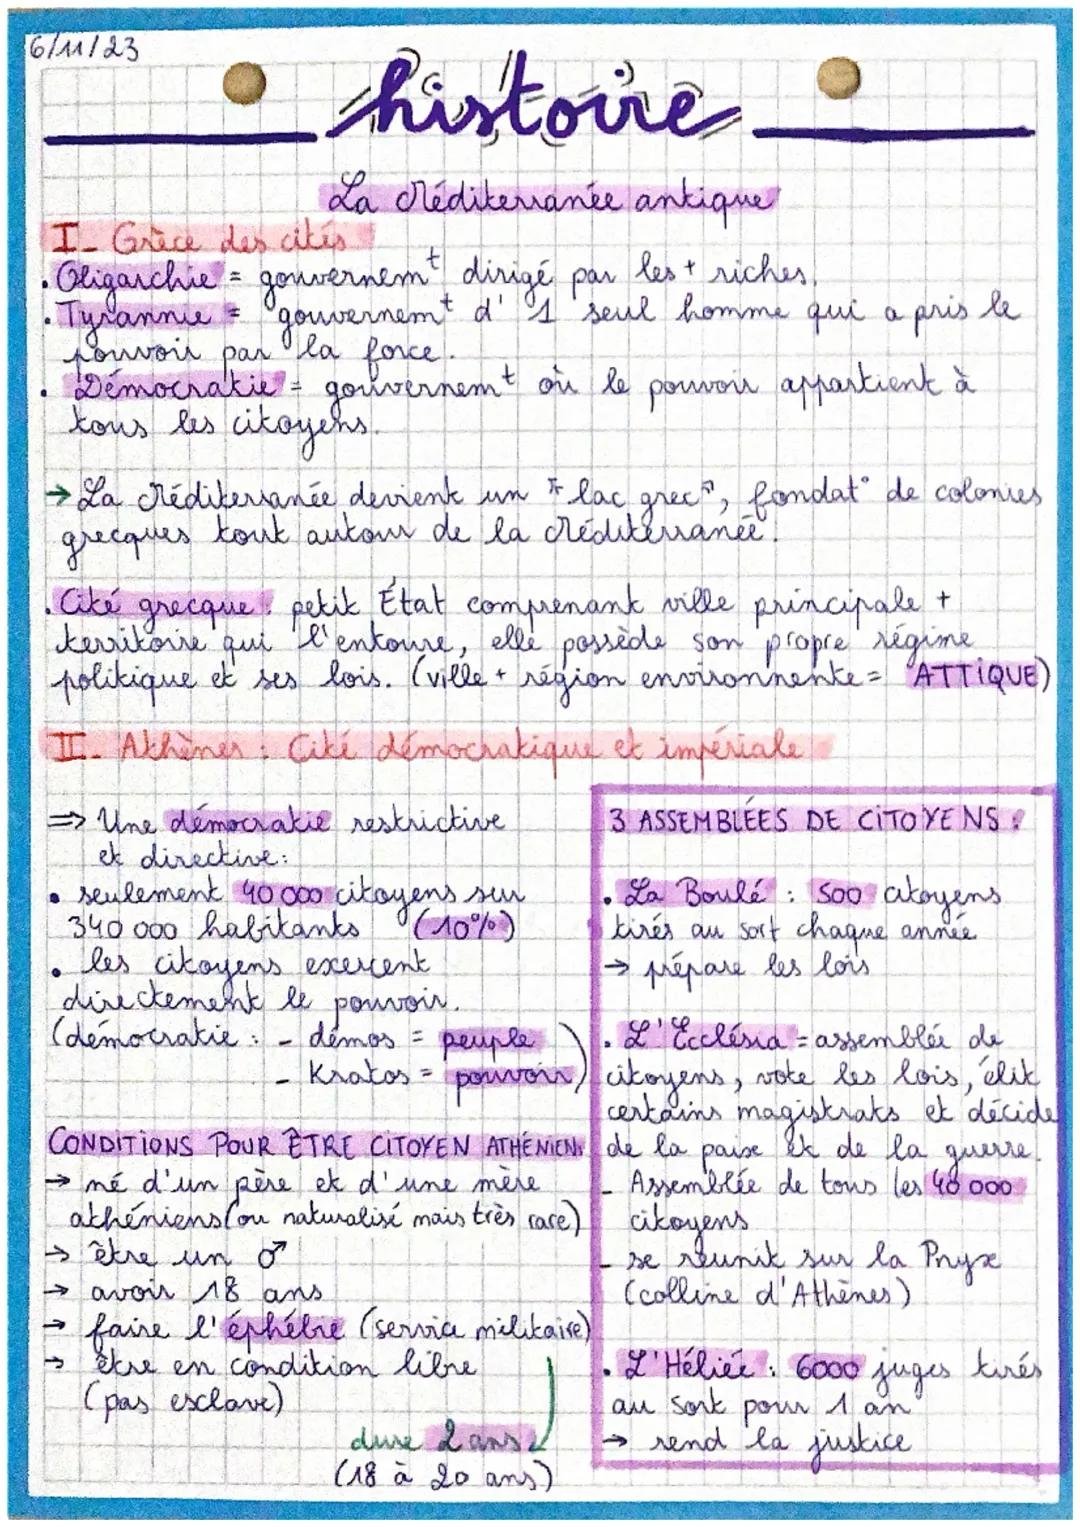 6/11/23
histoire
La Méditerranée antique
I- Grèce des cités
. Oligarchie = gouvernemt dirigé par les + riches.
. Tyrannie = gouvernemt d'1 seul homme qui a pris le
pouvoir par la force.
. Démocratie = gouvernemt où le pouvoir appartient à
tous les citoyens.
→ La Méditerranée devient un "lac grec", fondat° de colonies
grecques tout autour de la Méditerranée.
. Cité grecque : petit État comprenant ville principale +
territoire qui l'entoure, elle possède son propre régime
politique et ses lois. (ville + région environnente = ATTIQUE)
II- Athènes : Cité démocratique et impériale
⇒ Une démocratie restrictive
et directive :
• seulement 40 000 citoyens sur
340 000 habitants (10%)
• les citoyens exercent
directement le pouvoir.
(démocratie : - démos = peuple
- Kratos = pouvoir)
CONDITIONS POUR ÊTRE CITOYEN ATHÉNIEN :
→ né d'un père et d'une mère
athéniens (ou naturalisé mais très rare)
→ être un ♂
→ avoir 18 ans
→ faire l'éphébie (service militaire)
→ être en condition libre
(pas esclave)
dure 2 ans
(18 à 20 ans)
3 ASSEMBLÉES DE CITOYENS :
. La Boulé : 500 citoyens
tirés au sort chaque année
→ prépare les lois
. L'Ecclésia = assemblée de
citoyens, vote les lois, élit
certains magistrats et décide
de la paix et de la guerre.
- Assemblée de tous les 40 000
citoyens
- se réunit sur la Pnyx
(colline d'Athènes)
. L'Héliée : 6000 juges tirés
au sort pour 1 an
→ rend la justice